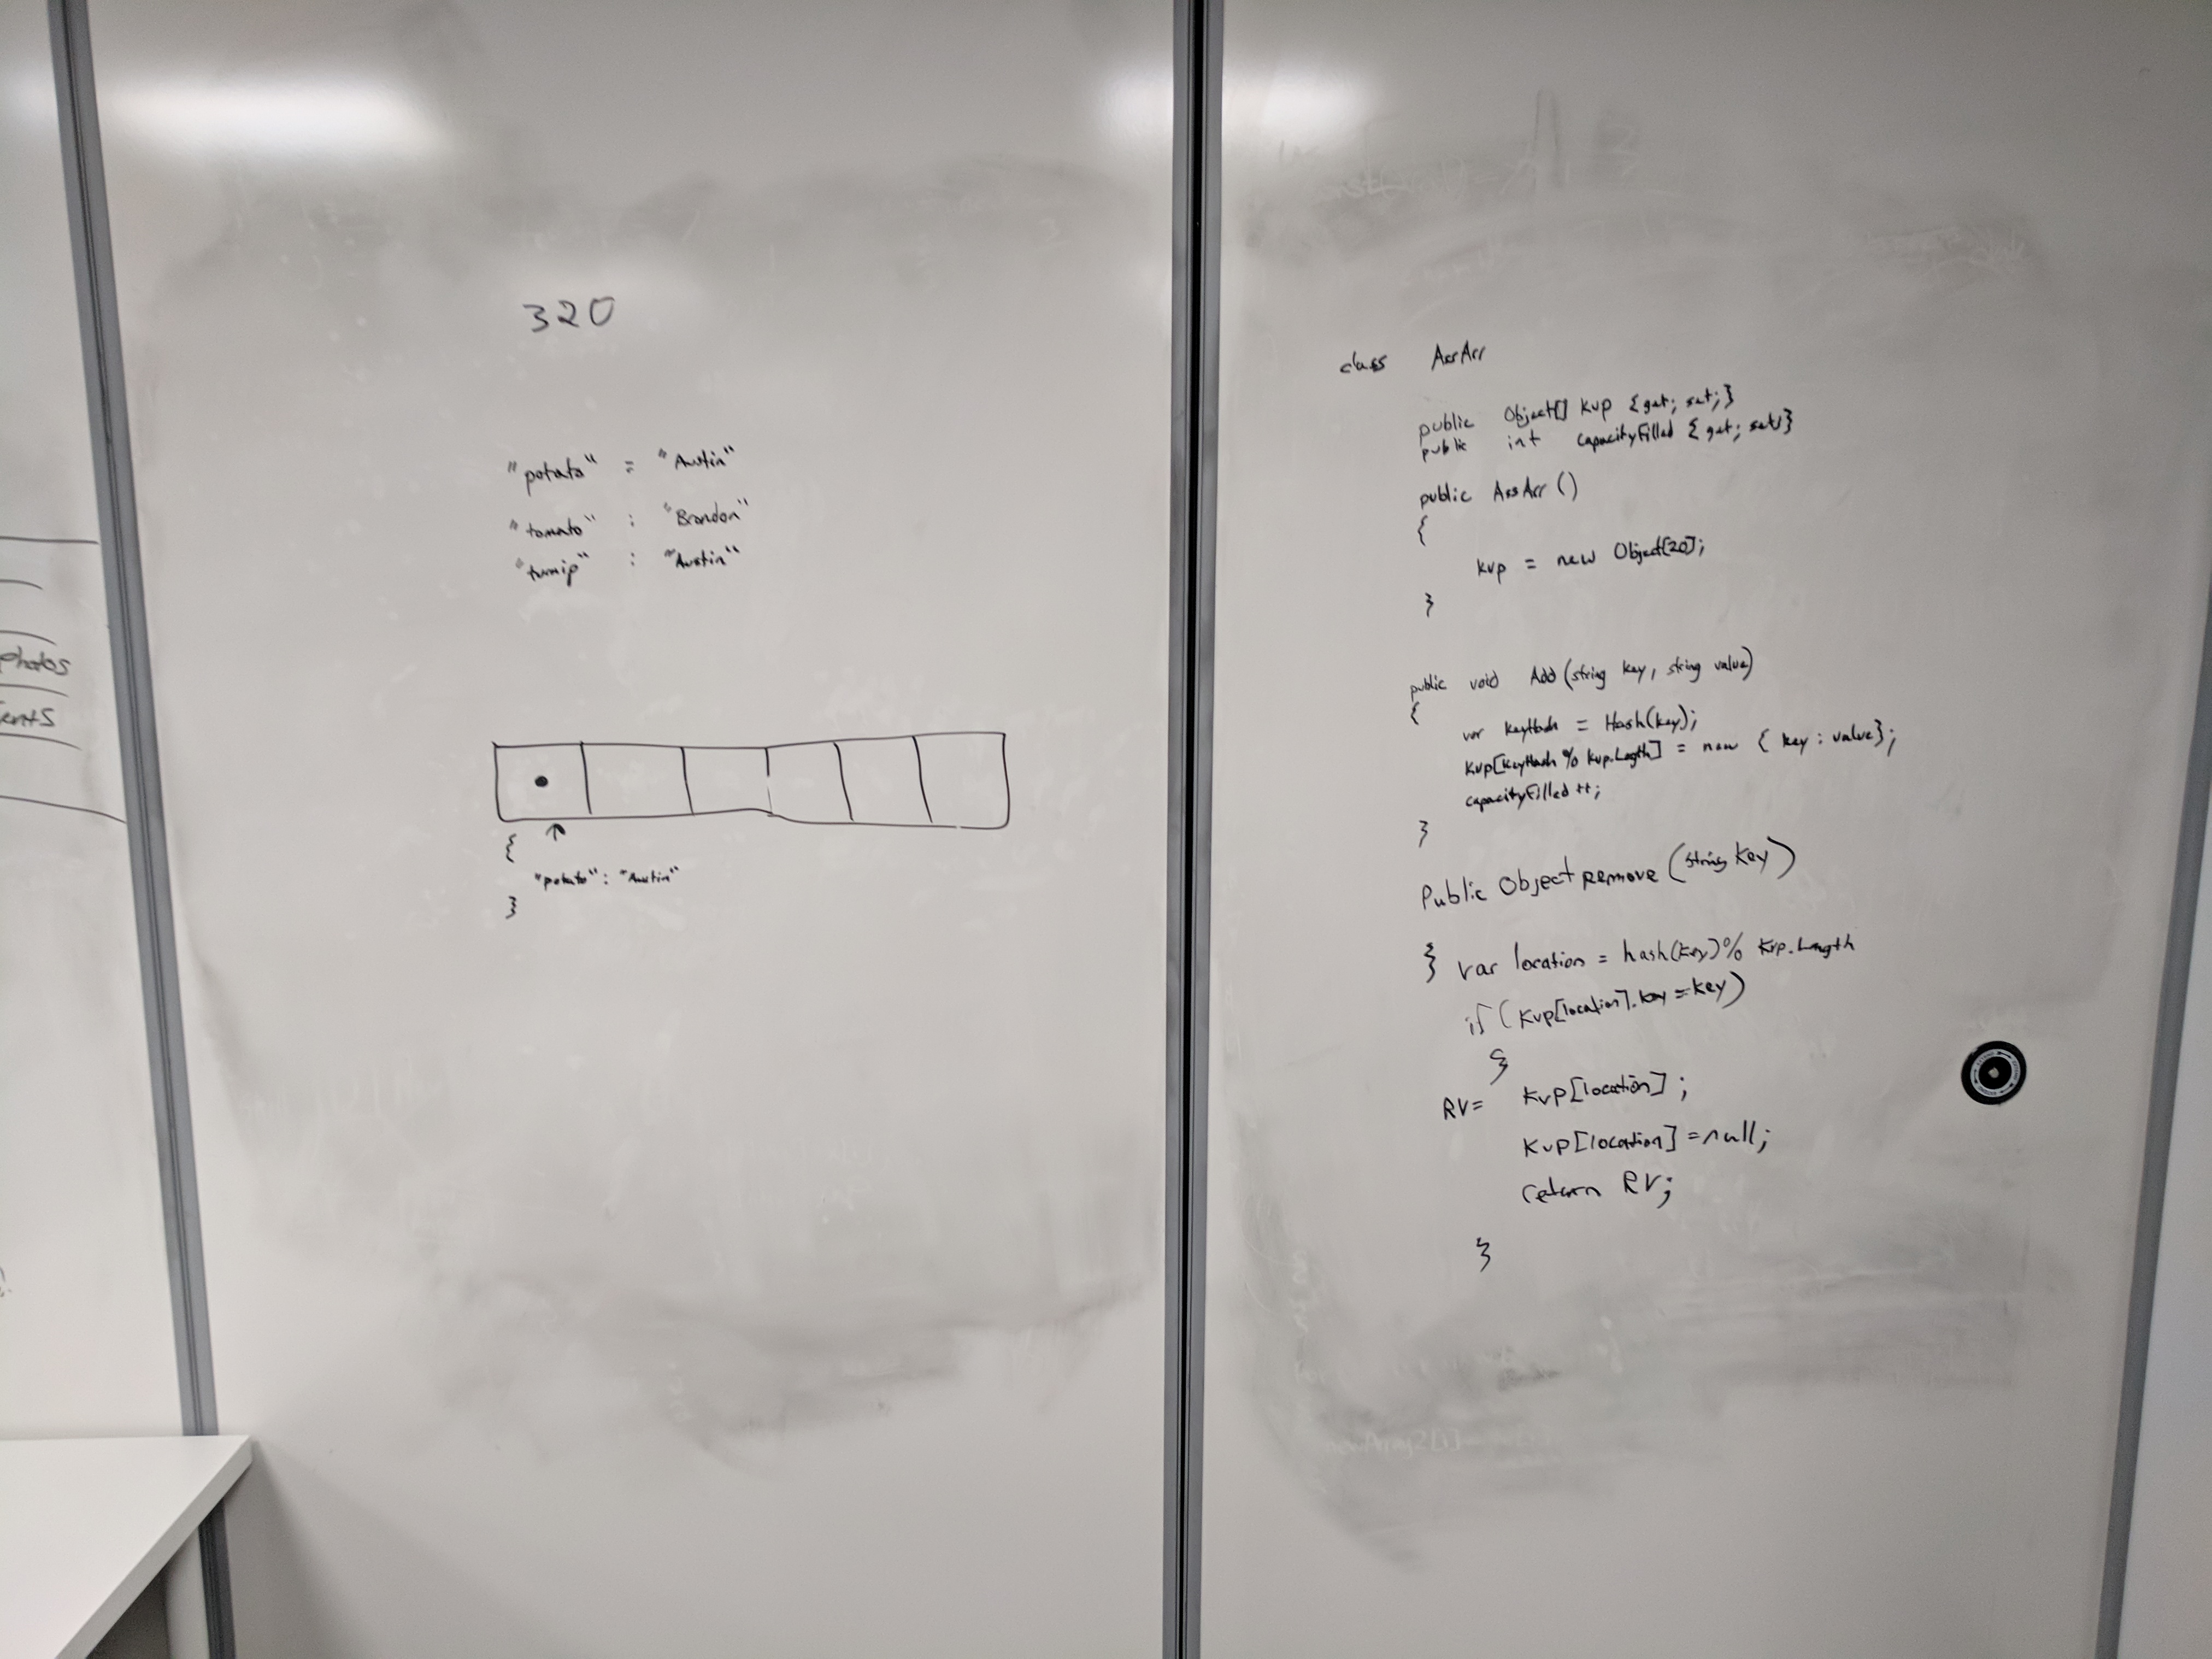 320
"potato" = "Austin"
"tomato" : "Brandon"
"turnip" : "Austin"
{
"potato" : "Austin"
}
photos
class AssArr
public Object[] kvp {get; set;}
public int capacityFilled {get; set;}
public AssArr ()
{
kvp = new Object[20];
}
public void Add (string key, string value)
{
var keyHash = Hash(key);
kvp[keyHash % kvp.Length] = new { key : value};
capacityFilled ++;
}
Public Object remove (string key)
{ var location = hash(key) % kvp.Length
if (kvp[location].key = key)
{
RV= kvp[location] ;
kvp[location] = null;
return RV;
}
newArray2[i]